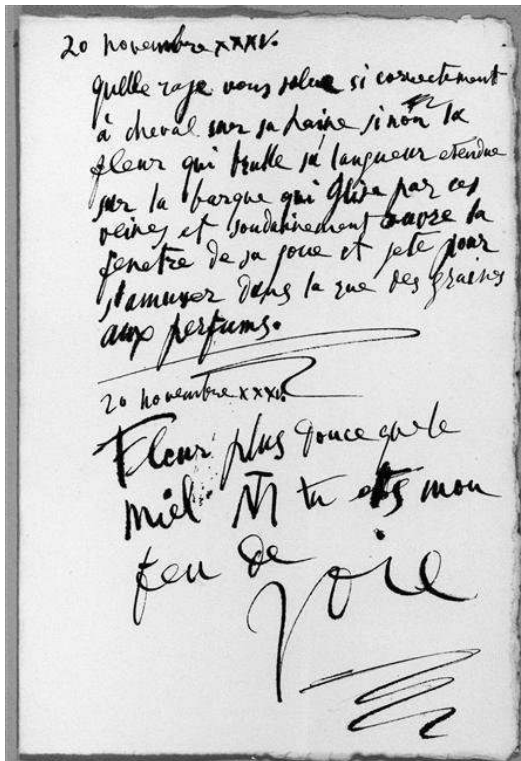 20 novembre XXXV.
quelle rage vous salue si correctement
à cheval sur sa haine sinon la
fleur qui brulle sa langueur etendue
sur la barque qui glisse par ces
veines et soudainnement ouvre la
fenetre de sa joue et jete pour
s'amuser dans la rue des graines
aux perfums.
20 novembre XXXV.
Fleur plus douce que le
miel tu es mon
feu de
joie